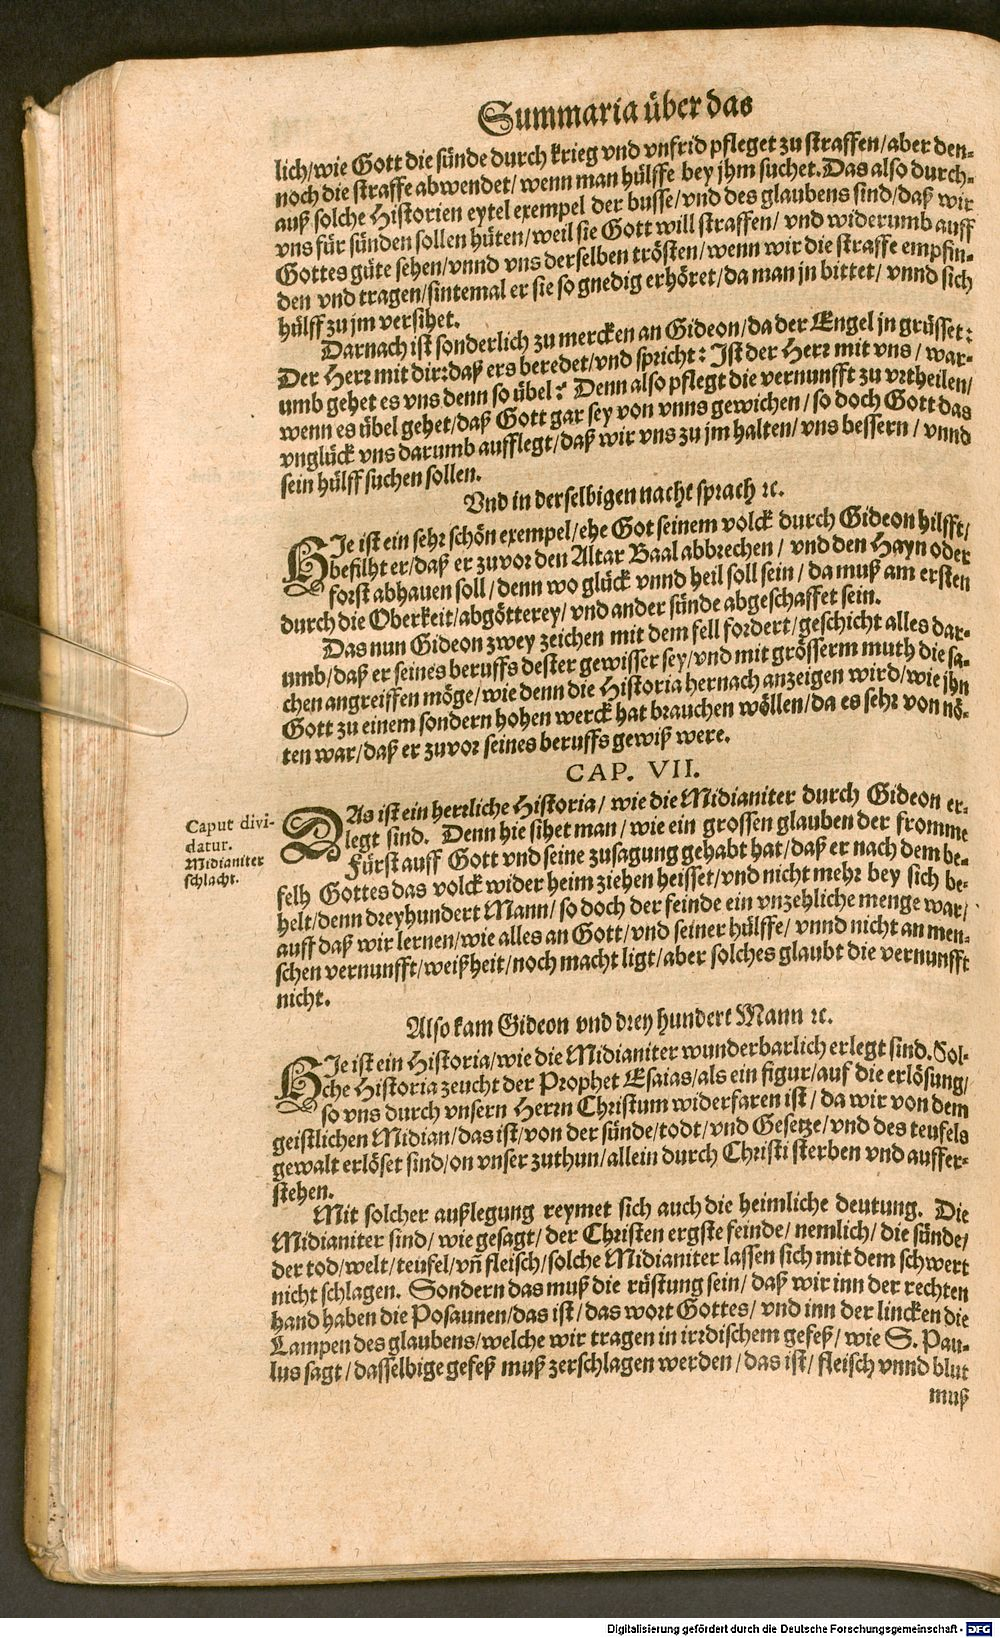 Summaria über das
lich/wie Gott die sünde durch krieg vnd vnfrid pfleget zu straffen/aber den-
noch die straffe abwendet/wenn man hülffe bey jhm suchet. Das also durch-
auß solche Historien eytel exempel der busse/vnd des glaubens sind/daß wir
vns für sünden sollen hüten/weil sie Gott will straffen/ vnd widerumb auff
Gottes güte sehen/vnnd vns derselben trösten/wenn wir die straffe empfin-
den vnd tragen/sintemal er sie so gnedig erhöret/da man jn bittet/ vnnd sich
hülff zu jm versihet.
Darnach ist sonderlich zu mercken an Gideon/da der Engel jn grüsset:
Der Herr mit dir: daß ers beredet/vnd spricht: Ist der Herr mit vns/ war-
umb gehet es vns denn so übel? Denn also pflegt die vernunfft zu vrtheilen/
wenn es übel gehet/daß Gott gar sey von vnns gewichen/so doch Gott das
vnglück vns darumb aufflegt/daß wir vns zu jm halten/vns bessern/ vnnd
sein hülff suchen sollen.
Vnd in derselbigen nacht sprach ꝛc.
HIe ist ein sehr schön exempel/ehe Got seinem volck durch Gideon hilfft/
befilht er/daß er zuvor den Altar Baal abbrechen/ vnd den Hayn oder
forst abhauen soll/denn wo glück vnnd heil soll sein/da muß am ersten
durch die Oberkeit/abgötterey/vnd ander sünde abgeschaffet sein.
Das nun Gideon zwey zeichen mit dem fell fordert/geschicht alles dar-
umb/daß er seines beruffs dester gewisser sey/vnd mit grösserm muth die sa-
chen angreiffen möge/wie denn die Historia hernach anzeigen wird/wie jhn
Gott zu einem sondern hohen werck hat brauchen wöllen/da es sehr von nö-
ten war/daß er zuvor seines beruffs gewiß were.
CAP. VII.
Caput divi-
datur.
Midianiter
schlacht.
DAs ist ein herrliche Historia/ wie die Midianiter durch Gideon er-
legt sind. Denn hie sihet man/wie ein grossen glauben der fromme
Fürst auff Gott vnd seine zusagung gehabt hat/daß er nach dem be-
felh Gottes das volck wider heim ziehen heisset/vnd nicht mehr bey sich be-
helt/denn dreyhundert Mann/so doch der feinde ein vnzehliche menge war/
auff daß wir lernen/wie alles an Gott/vnd seiner hülffe/ vnnd nicht an men-
schen vernunfft/weißheit/noch macht ligt/aber solches glaubt die vernunfft
nicht.
Also kam Gideon vnd drey hundert Mann ꝛc.
HIe ist ein Historia/wie die Midianiter wunderbarlich erlegt sind. Sol-
che Historia zeucht der Prophet Esaias/als ein figur/auf die erlösung/
so vns durch vnsern Herrn Christum widerfaren ist/da wir von dem
geistlichen Midian/das ist/von der sünde/todt/vnd Gesetze/vnd des teufels
gewalt erlöset sind/on vnser zuthun/allein durch Christi sterben vnd auffer-
stehen.
Mit solcher außlegung reymet sich auch die heimliche deutung. Die
Midianiter sind/ wie gesagt/ der Christen ergste feinde/ nemlich/ die sünde/
der tod/welt/teufel/vñ fleisch/solche Midianiter lassen sich mit dem schwert
nicht schlagen. Sondern das muß die rüstung sein/ daß wir inn der rechten
hand haben die Posaunen/das ist/das wort Gottes/ vnd inn der lincken die
Lampen des glaubens/welche wir tragen in irrdischem gefeß/ wie S. Pau-
lus sagt/dasselbige gefeß muß zerschlagen werden/das ist/ fleisch vnnd blut
muß
Digitalisierung gefördert durch die Deutsche Forschungsgemeinschaft - DFG